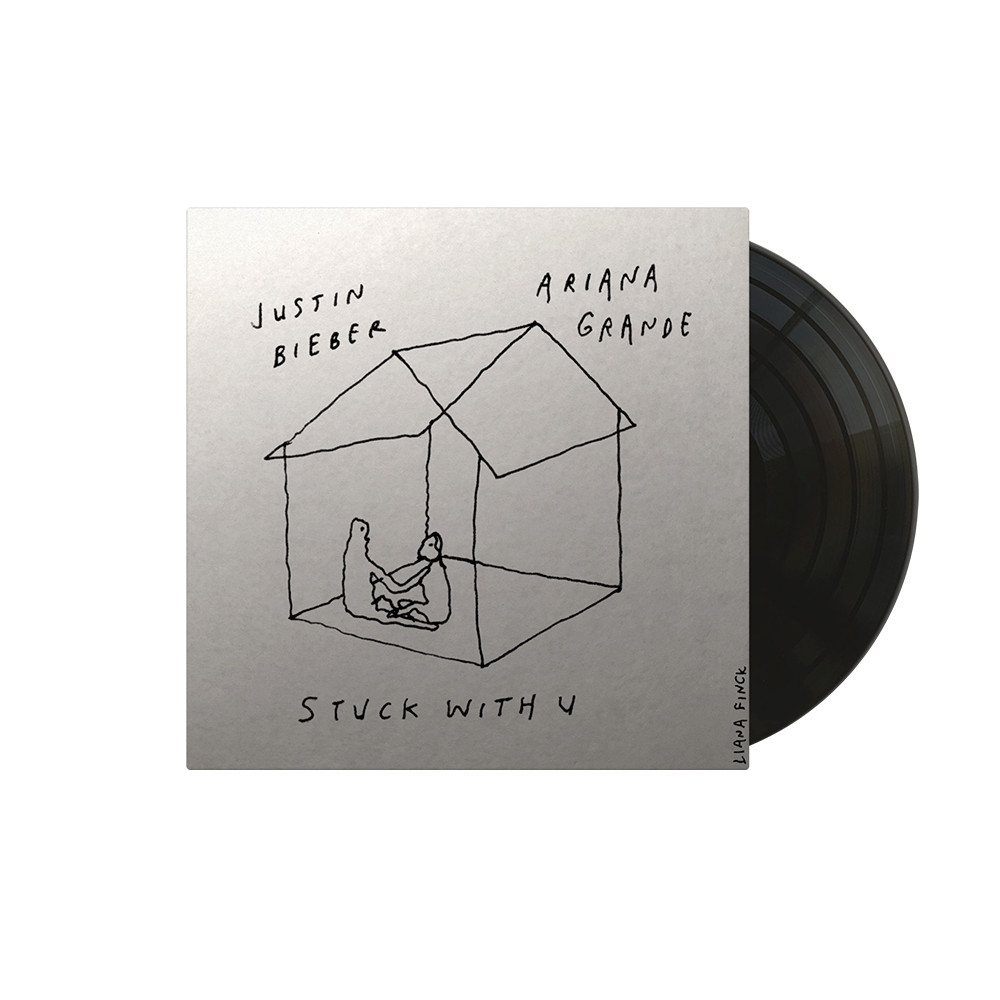 JUSTIN
BIEBER
ARIANA
GRANDE
STUCK WITH U
LIANA FINCK